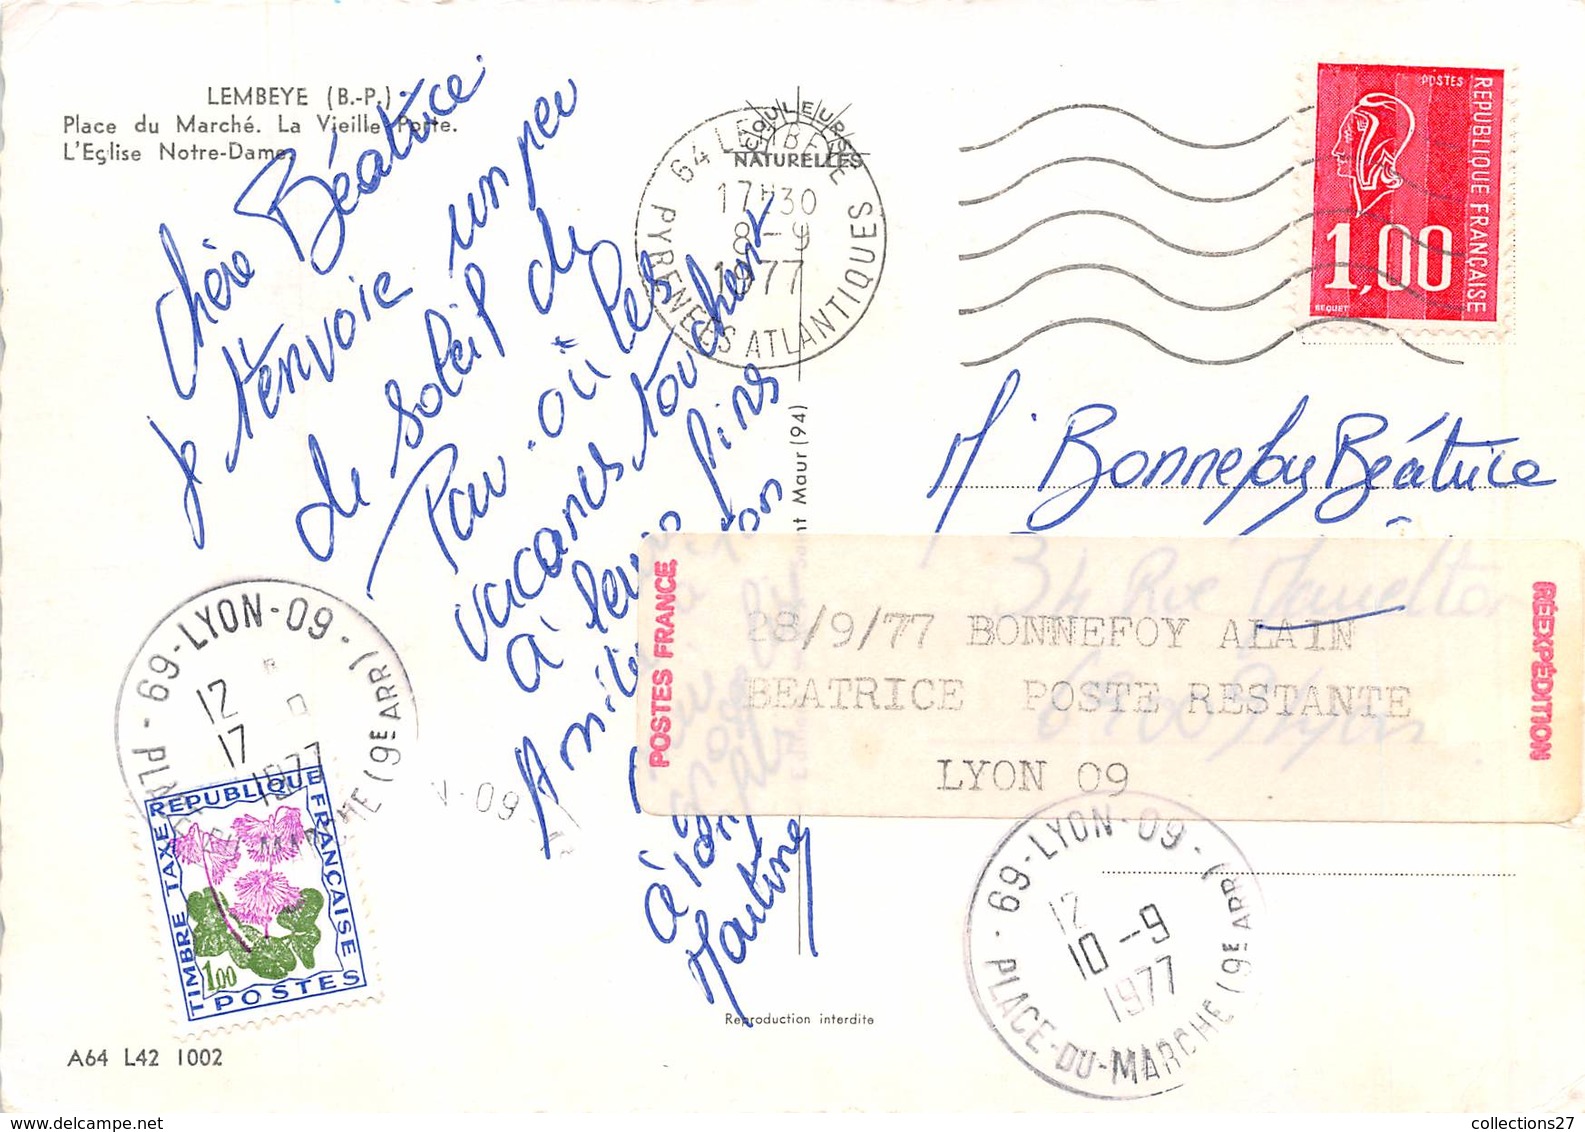 LEMBEYE (B.-P.)
Place du Marché. La Vieille Porte.
L'Eglise Notre-Dame.
COULEURS
NATURELLES
64 LEMBEYE
17H30
8-9
1977
PYRENEES ATLANTIQUES
POSTES
REPUBLIQUE FRANÇAISE
1,00
BEQUET
Chère Béatrice
je t'envoie un peu
de soleil de
Pau où les
vacances touchent
à leurs fins
à
Martine
M Bonnefoy Béatrice
34 Rue
POSTES FRANCE
28/9/77 BONNEFOY ALAIN
BEATRICE POSTE RESTANTE
LYON 09
RÉEXPÉDITION
nt Maur (94)
69-LYON-09
12
17
1977
PL MARCHE (9E ARR)
V-09
REPUBLIQUE FRANÇAISE
TIMBRE TAXE
1,00
POSTES
69-LYON-09
12
10-9
1977
PLACE-DU-MARCHE (9E ARR)
Reproduction interdite
A64 L42 1002
collections27